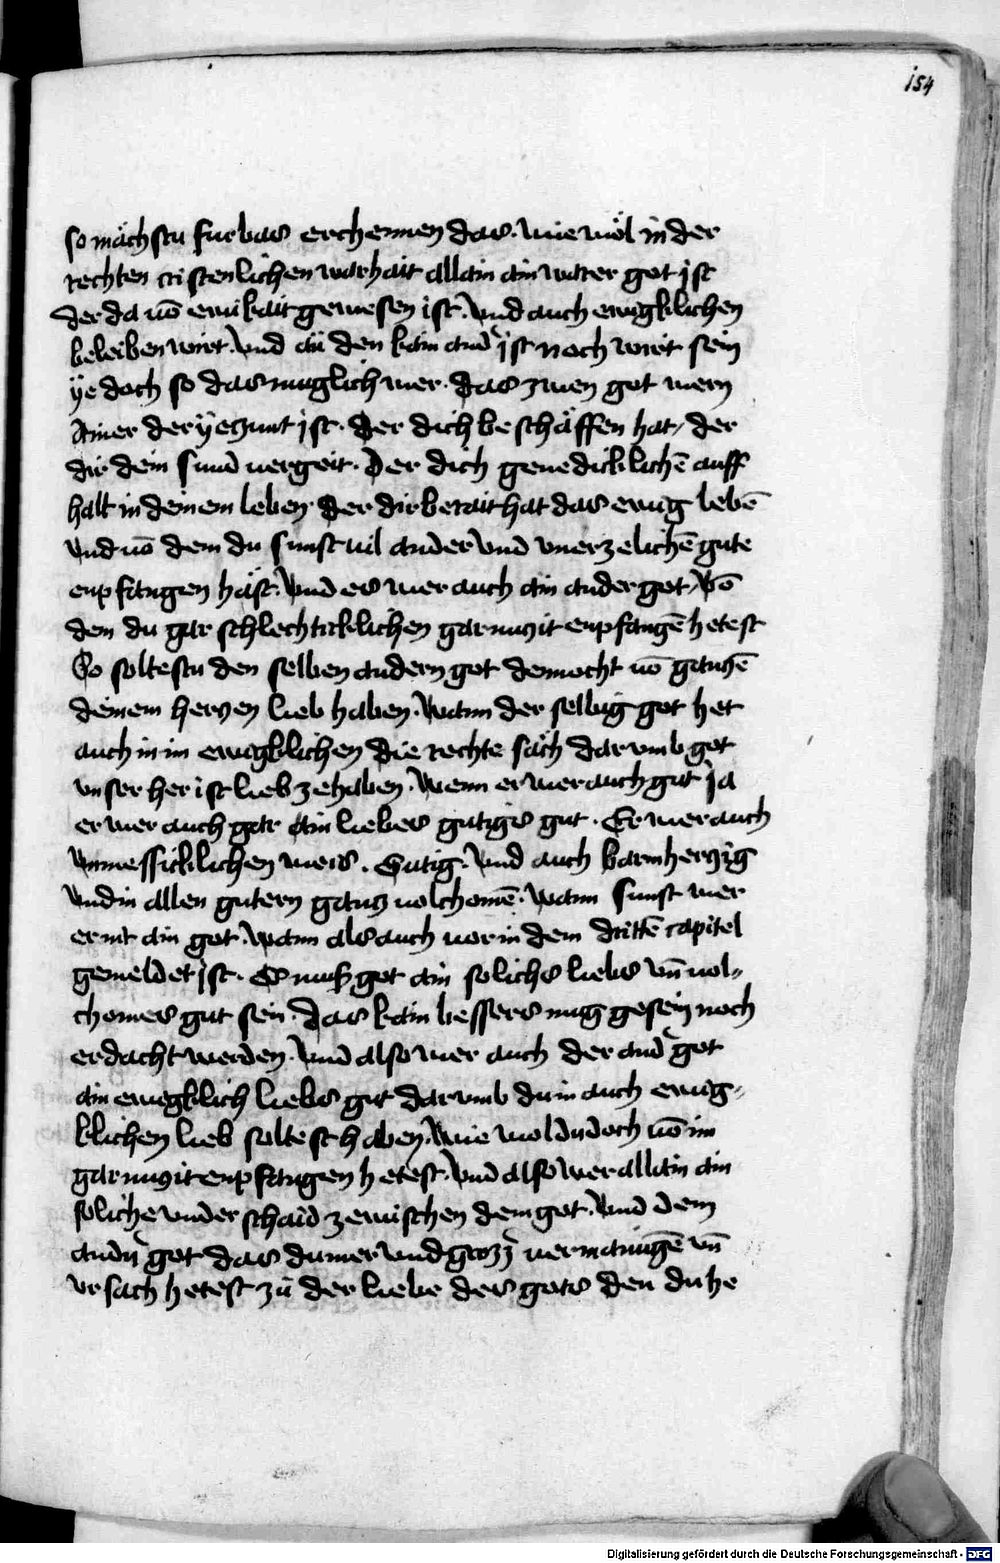 154
so mächstu furbas erchennen das. wie wol in der
rechten cristenlichen warhait allain ain warer got jst
der da võ ewikait gewesen ist. Vnd auch ewigklichen
beleiben wirt. Vnd an den kain and' jst noch wirt sein
ÿe doch so das muglich wer. das zwen got wern
Ainer der ÿeczunt jst. Der dich beschäffen hat, der
dir dein sund vergeit. Der dich genedicklichē auff
halt in deinem leben. Der dir berait hat das ewig lebē
vnd võ dem du sunst vil ander vnd vnerzelichē gute
enpfangen hast. Vnd es wer auch ain ander got, Võ
dem du gar schlechticklichen gar nichtz enpfangē hetest
So soltestu den selben andern got dennocht võ ganczē
deinem herczen lieb haben. Wann der selbig got het
auch in im ewigklichen die rechte sach darumb got
vnser her ist lieb zehaben. Wenn er wer auch gut ja
er wer auch gar ain liebes gutigs gut. Er wer auch
vnmessicklichen weis. Gutig. Vnd auch barmherczig
Vnd in allen gutern gancz volchomē. Wann sunst wer
er nit ain got. Wann als auch vor in dem drittē capitel
gemeldet jst. So muß got ain solichs liebs vn̄ vol-
chomes gut sein. Das kain bessers mug gesein noch
erdacht werden. Vnd also wer auch der and' got
ain ewigklich liebs gut darumb du in auch ewig-
klichen lieb soltest haben. Wie wol du doch võ im
gar nichtz enpfangen hetest. Vnd also wer allain ain
soliche vnderschaid zewischen dem got. Vnd dem
andn' got das du mer vnd grozz' vermanūgē vn̄
vrsach hetest zu der liebe des gots den du he
Digitalisierung gefördert durch die Deutsche Forschungsgemeinschaft - DFG